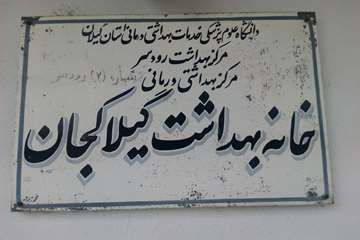 دانشگاه علوم پزشکی خدمات بهداشتی درمانی استان گیلان
مرکز بهداشت رودسر
مرکز بهداشتی درمانی شماره (۲) رودسر
خانه بهداشت گیلاکجان